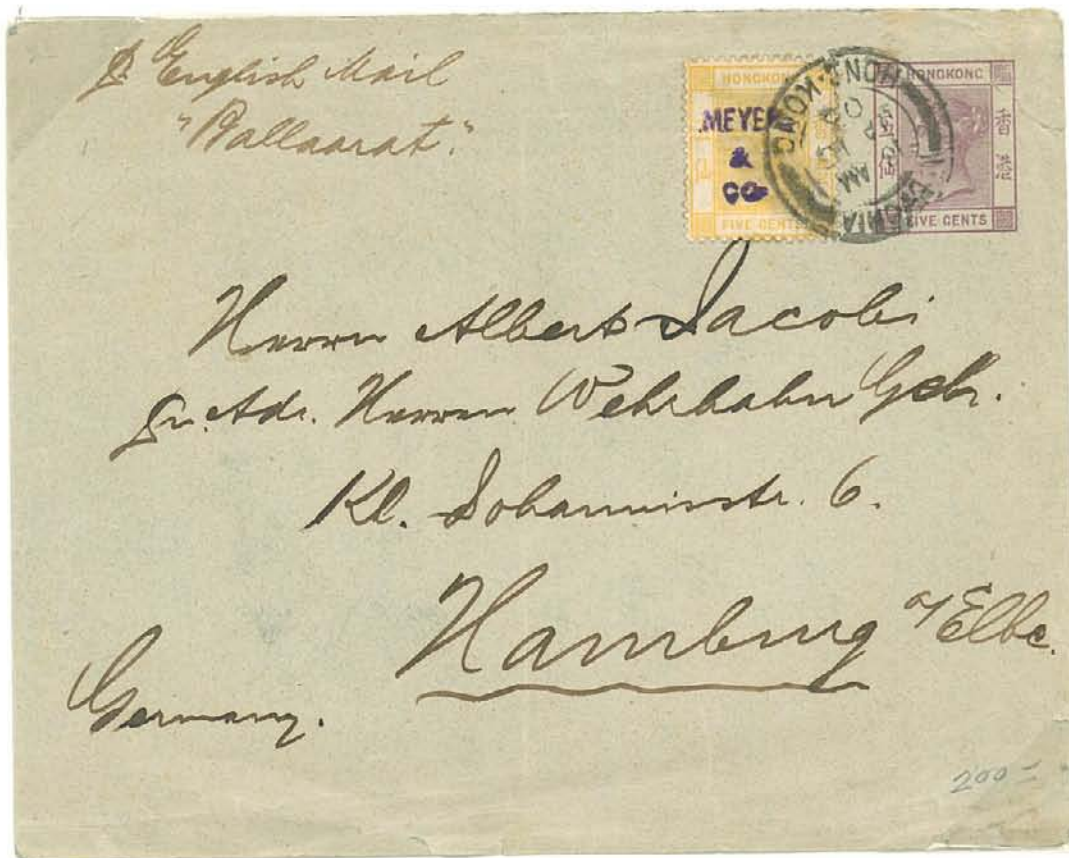 p English Mail
"Ballaarat".
HONGKONG
MEYER
&
CO
FIVE CENTS
HONG·KONG
AM
VICTORIA
HONGKONG
香港
FIVE CENTS
Herrn Albert Jacobi
pr. Adr. Herren Wehrhahn Gebr.
Kl. Johannisstr. 6.
Hamburg a/Elbe.
Germany.
200-